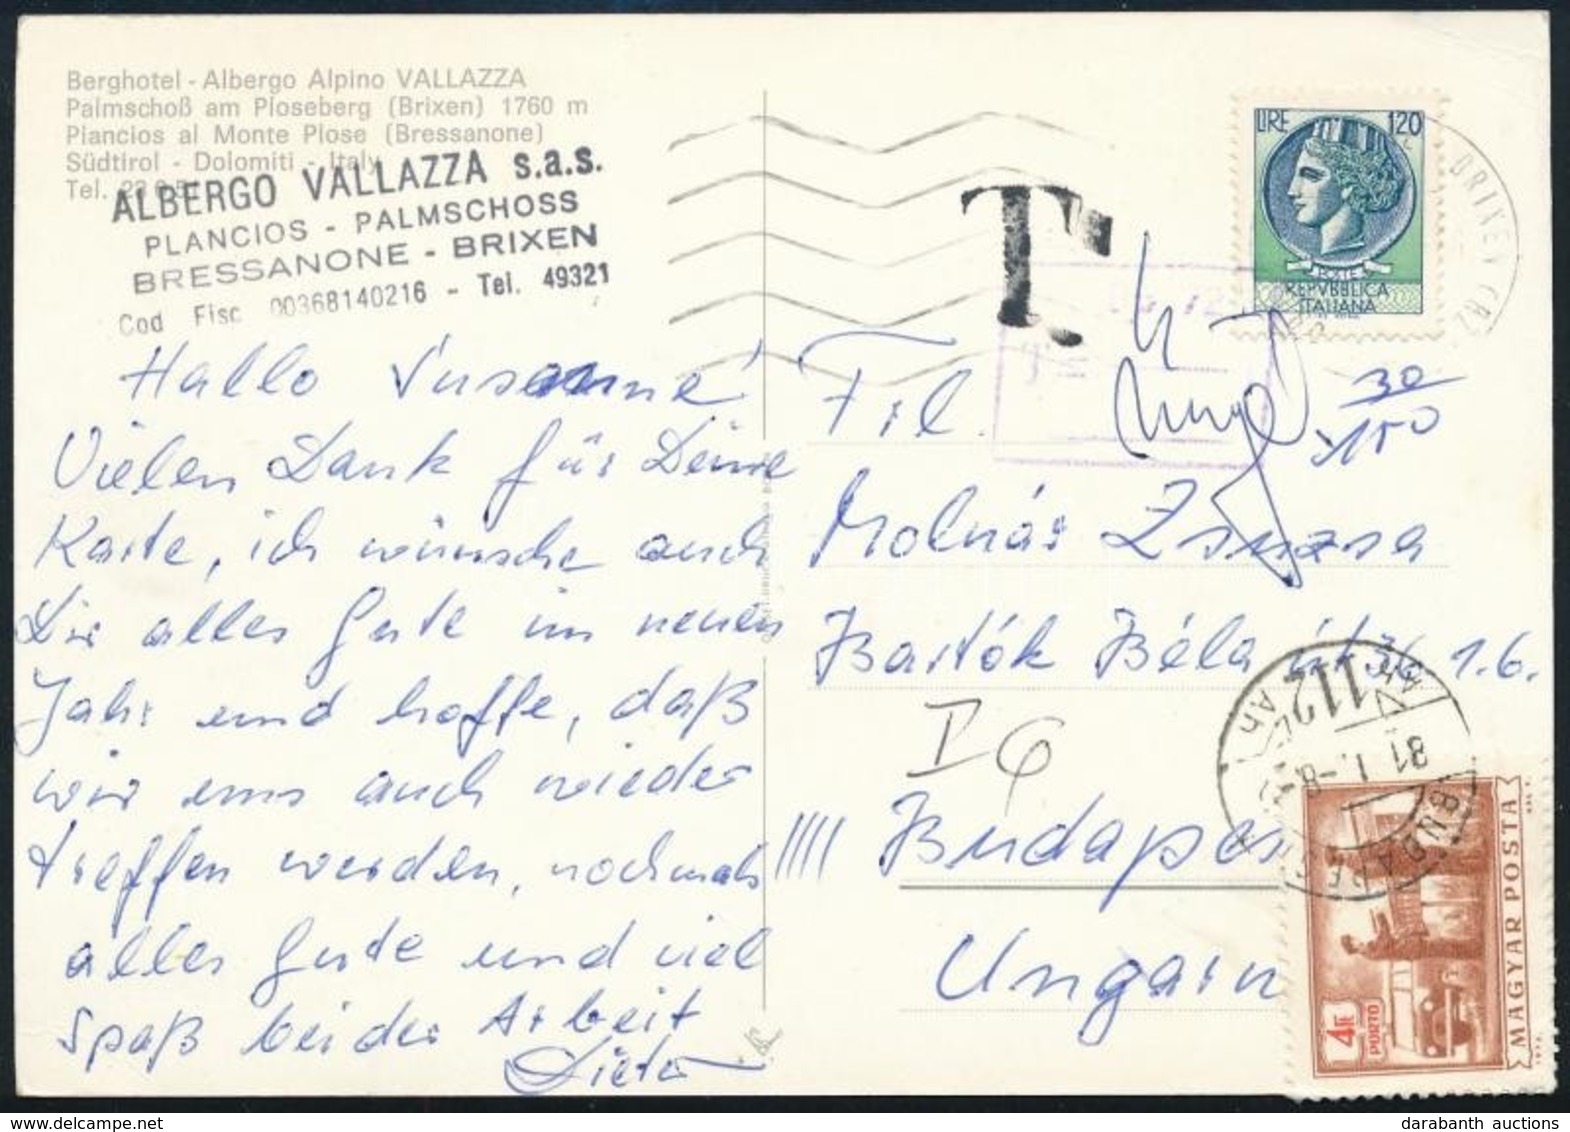 Berghotel - Albergo Alpino VALLAZZA
Palmschoß am Ploseberg (Brixen) 1760 m
Plancios al Monte Plose (Bressanone)
Südtirol - Dolomiti - Italy
Tel.
ALBERGO VALLAZZA s.a.s.
PLANCIOS - PALMSCHOSS
BRESSANONE - BRIXEN
Cod Fisc 00368140216 - Tel. 49321
Hallo Susanne!
Vielen Dank für Deine
Karte, ich wünsche auch
Dir alles Gute im neuen
Jahr und hoffe, daß
wir uns auch wieder
treffen werden, nochmals
alles Gute und viel
Spaß bei der Arbeit
Dieter
T
LIRE 120
POSTE
REPVBBLICA
ITALIANA
BRIXEN
30
150
Frl.
Molnár Zsuzsa
Bartók Béla út 36 1.6.
Budapest
Ungarn
112
81 1.-8
BUDAPEST
4Ft
PORTO
MAGYAR POSTA
darabanth auctions